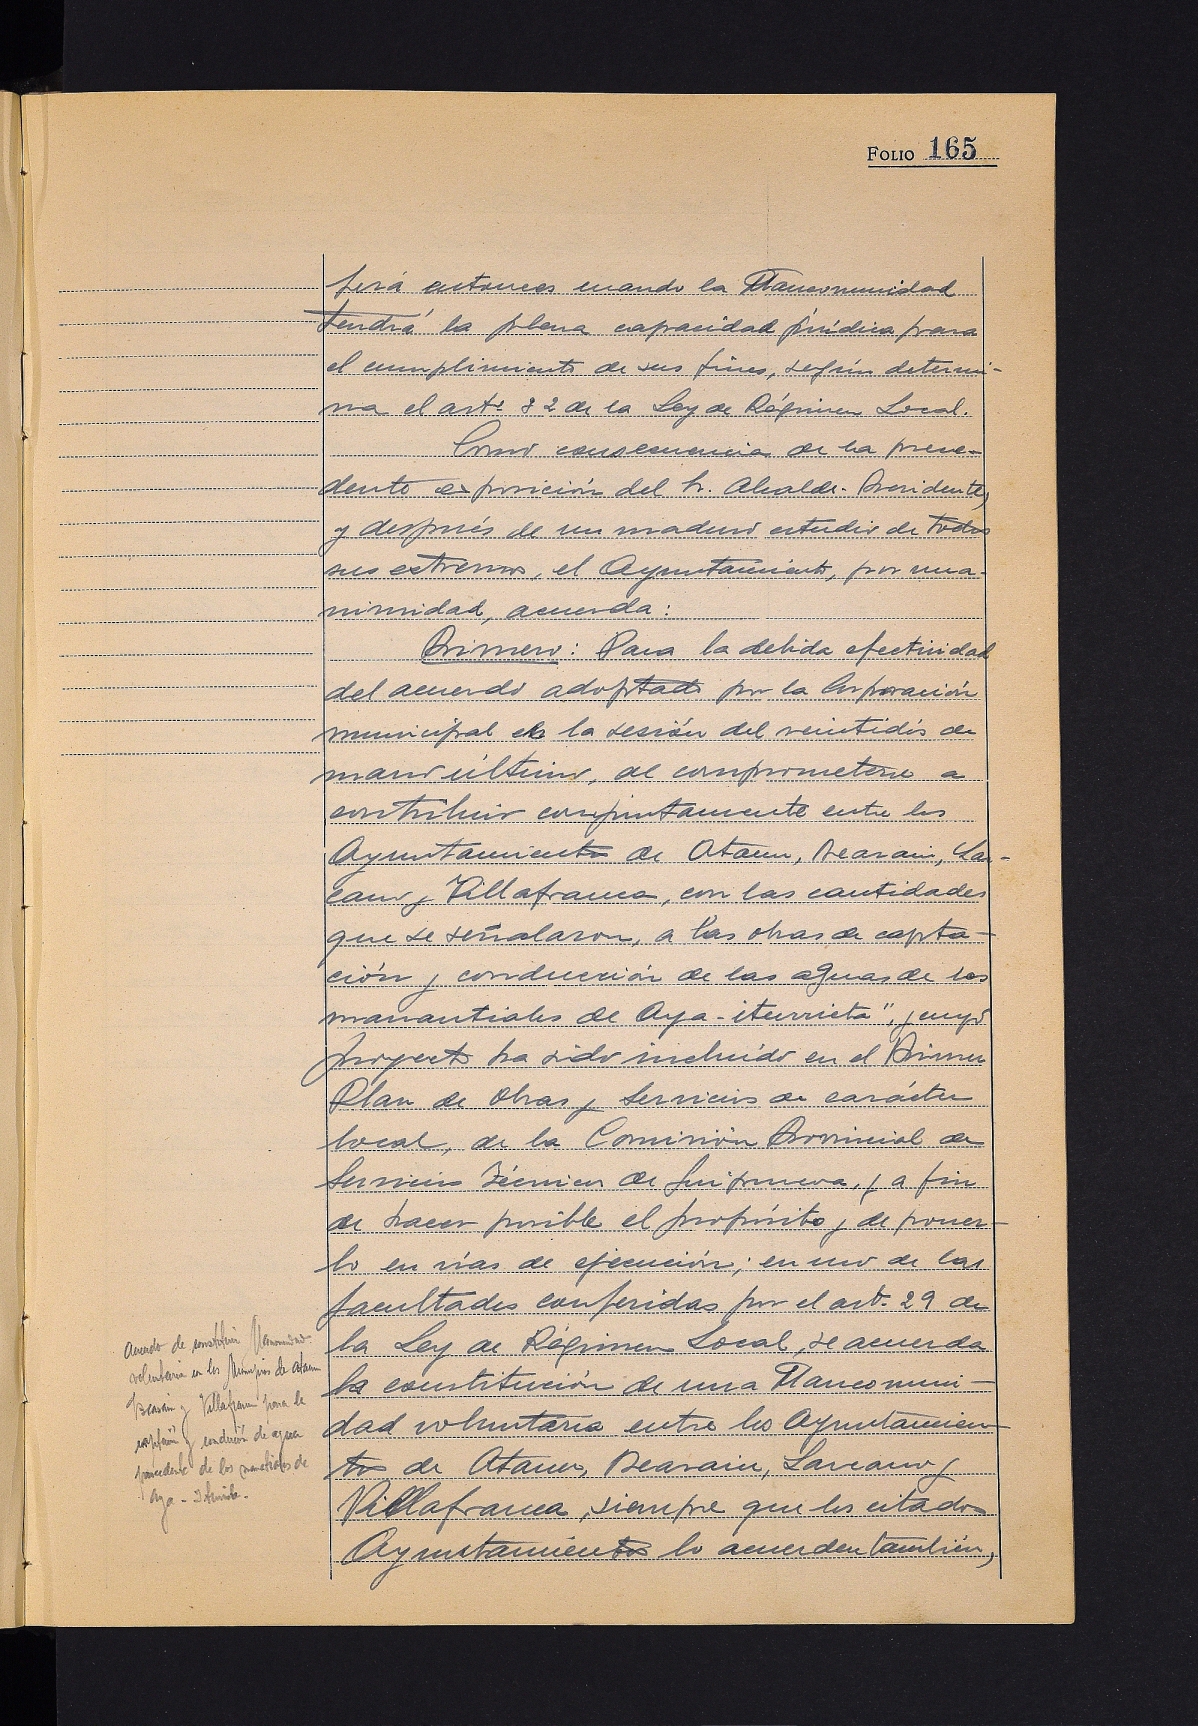 FOLIO 165
Será entonces cuando la Mancomunidad
tendrá la plena capacidad jurídica para
el cumplimiento de sus fines, según determi-
na el artº 32 de la Ley de Régimen Local.
Como consecuencia de la prece-
dente exposición del Sr. Alcalde-Presidente,
y después de un maduro estudio de todos
sus extremos, el Ayuntamiento, por una-
nimidad, acuerda:
Primero: Para la debida efectividad
del acuerdo adoptado por la Corporación
municipal en la sesión del veintidós de
marzo último, de comprometerse a
contribuir conjuntamente entre los
Ayuntamientos de Ataun, Beasain, Laz-
cano y Villafranca, con las cantidades
que se señalaron, a las obras de capta-
ción y conducción de las aguas de los
manantiales de Aya-iturrieta", y cuyo
proyecto ha sido incluído en el Primer
Plan de Obras y Servicios de carácter
local, de la Comisión Provincial de
Servicios Técnicos de Guipúzcoa, y a fin
de hacer posible el propósito y de poner-
lo en vías de ejecución; en uso de las
facultades conferidas por el art. 29 de
la Ley de Régimen Local, se acuerda
la constitución de una Mancomuni-
dad voluntaria entre los Ayuntamien-
tos de Ataun, Beasain, Lazcano y
Villafranca, siempre que los citados
Ayuntamientos lo acuerden también,
Acuerdo de constituir Mancomunidad
voluntaria en los Municipios de Ataun
Beasain y Villafranca para la
captación y conducción de aguas
procedente de los manantiales de
Aya - Iturrieta.